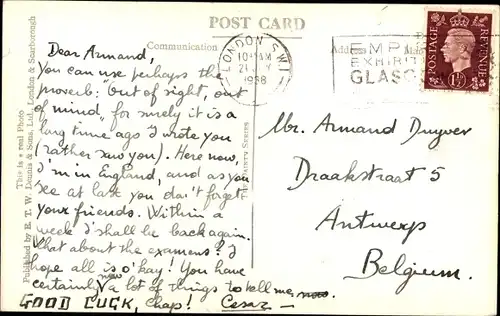 POST CARD
Communication
This is a real Photo
Published by E. T. W. Dennis & Sons, Ltd., London & Scarborough
THE DAINTY SERIES
LONDON S.W.1
10 AM
1938
EMP
EXHIBIT
GLASG
POSTAGE
REVENUE
1½D
Dear Armand,
You can use perhaps the
proverb: "Out of sight, out
of mind" for surely it is a
long time ago I wrote you
(rather saw you). Here now,
I'm in England, and as you
see at last you don't forget
your friends. Within a
week I shall be back again.
What about the examens? I
hope all is o'kay! You have
certainly now a lot of things to tell me
GOOD LUCK, chap! Cesar —
Mr. Armand Duyver
Draakstraat 5
Antwerp
Belgium.